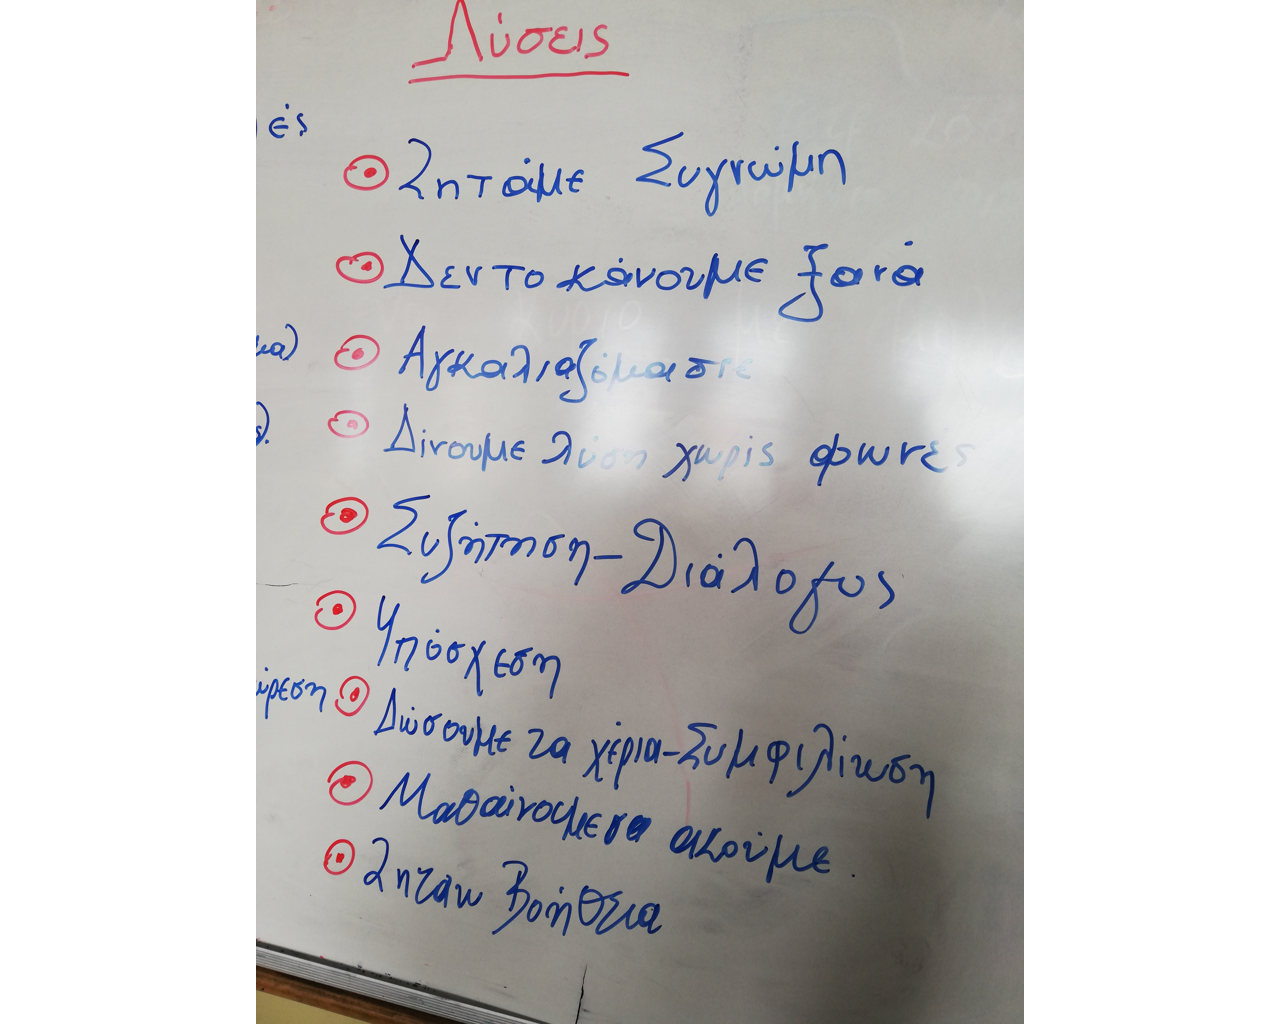 Λύσεις
Ζητάμε Συγνώμη
Δεν το κάνουμε ξανά
Αγκαλιαζόμαστε
Δίνουμε λύση χωρίς φωνές
Συζήτηση-Διάλογος
Υπόσχεση
Δώσουμε τα χέρια-Συμφιλίωση
Μαθαίνουμε να ακούμε.
Ζηταω Βοήθεια